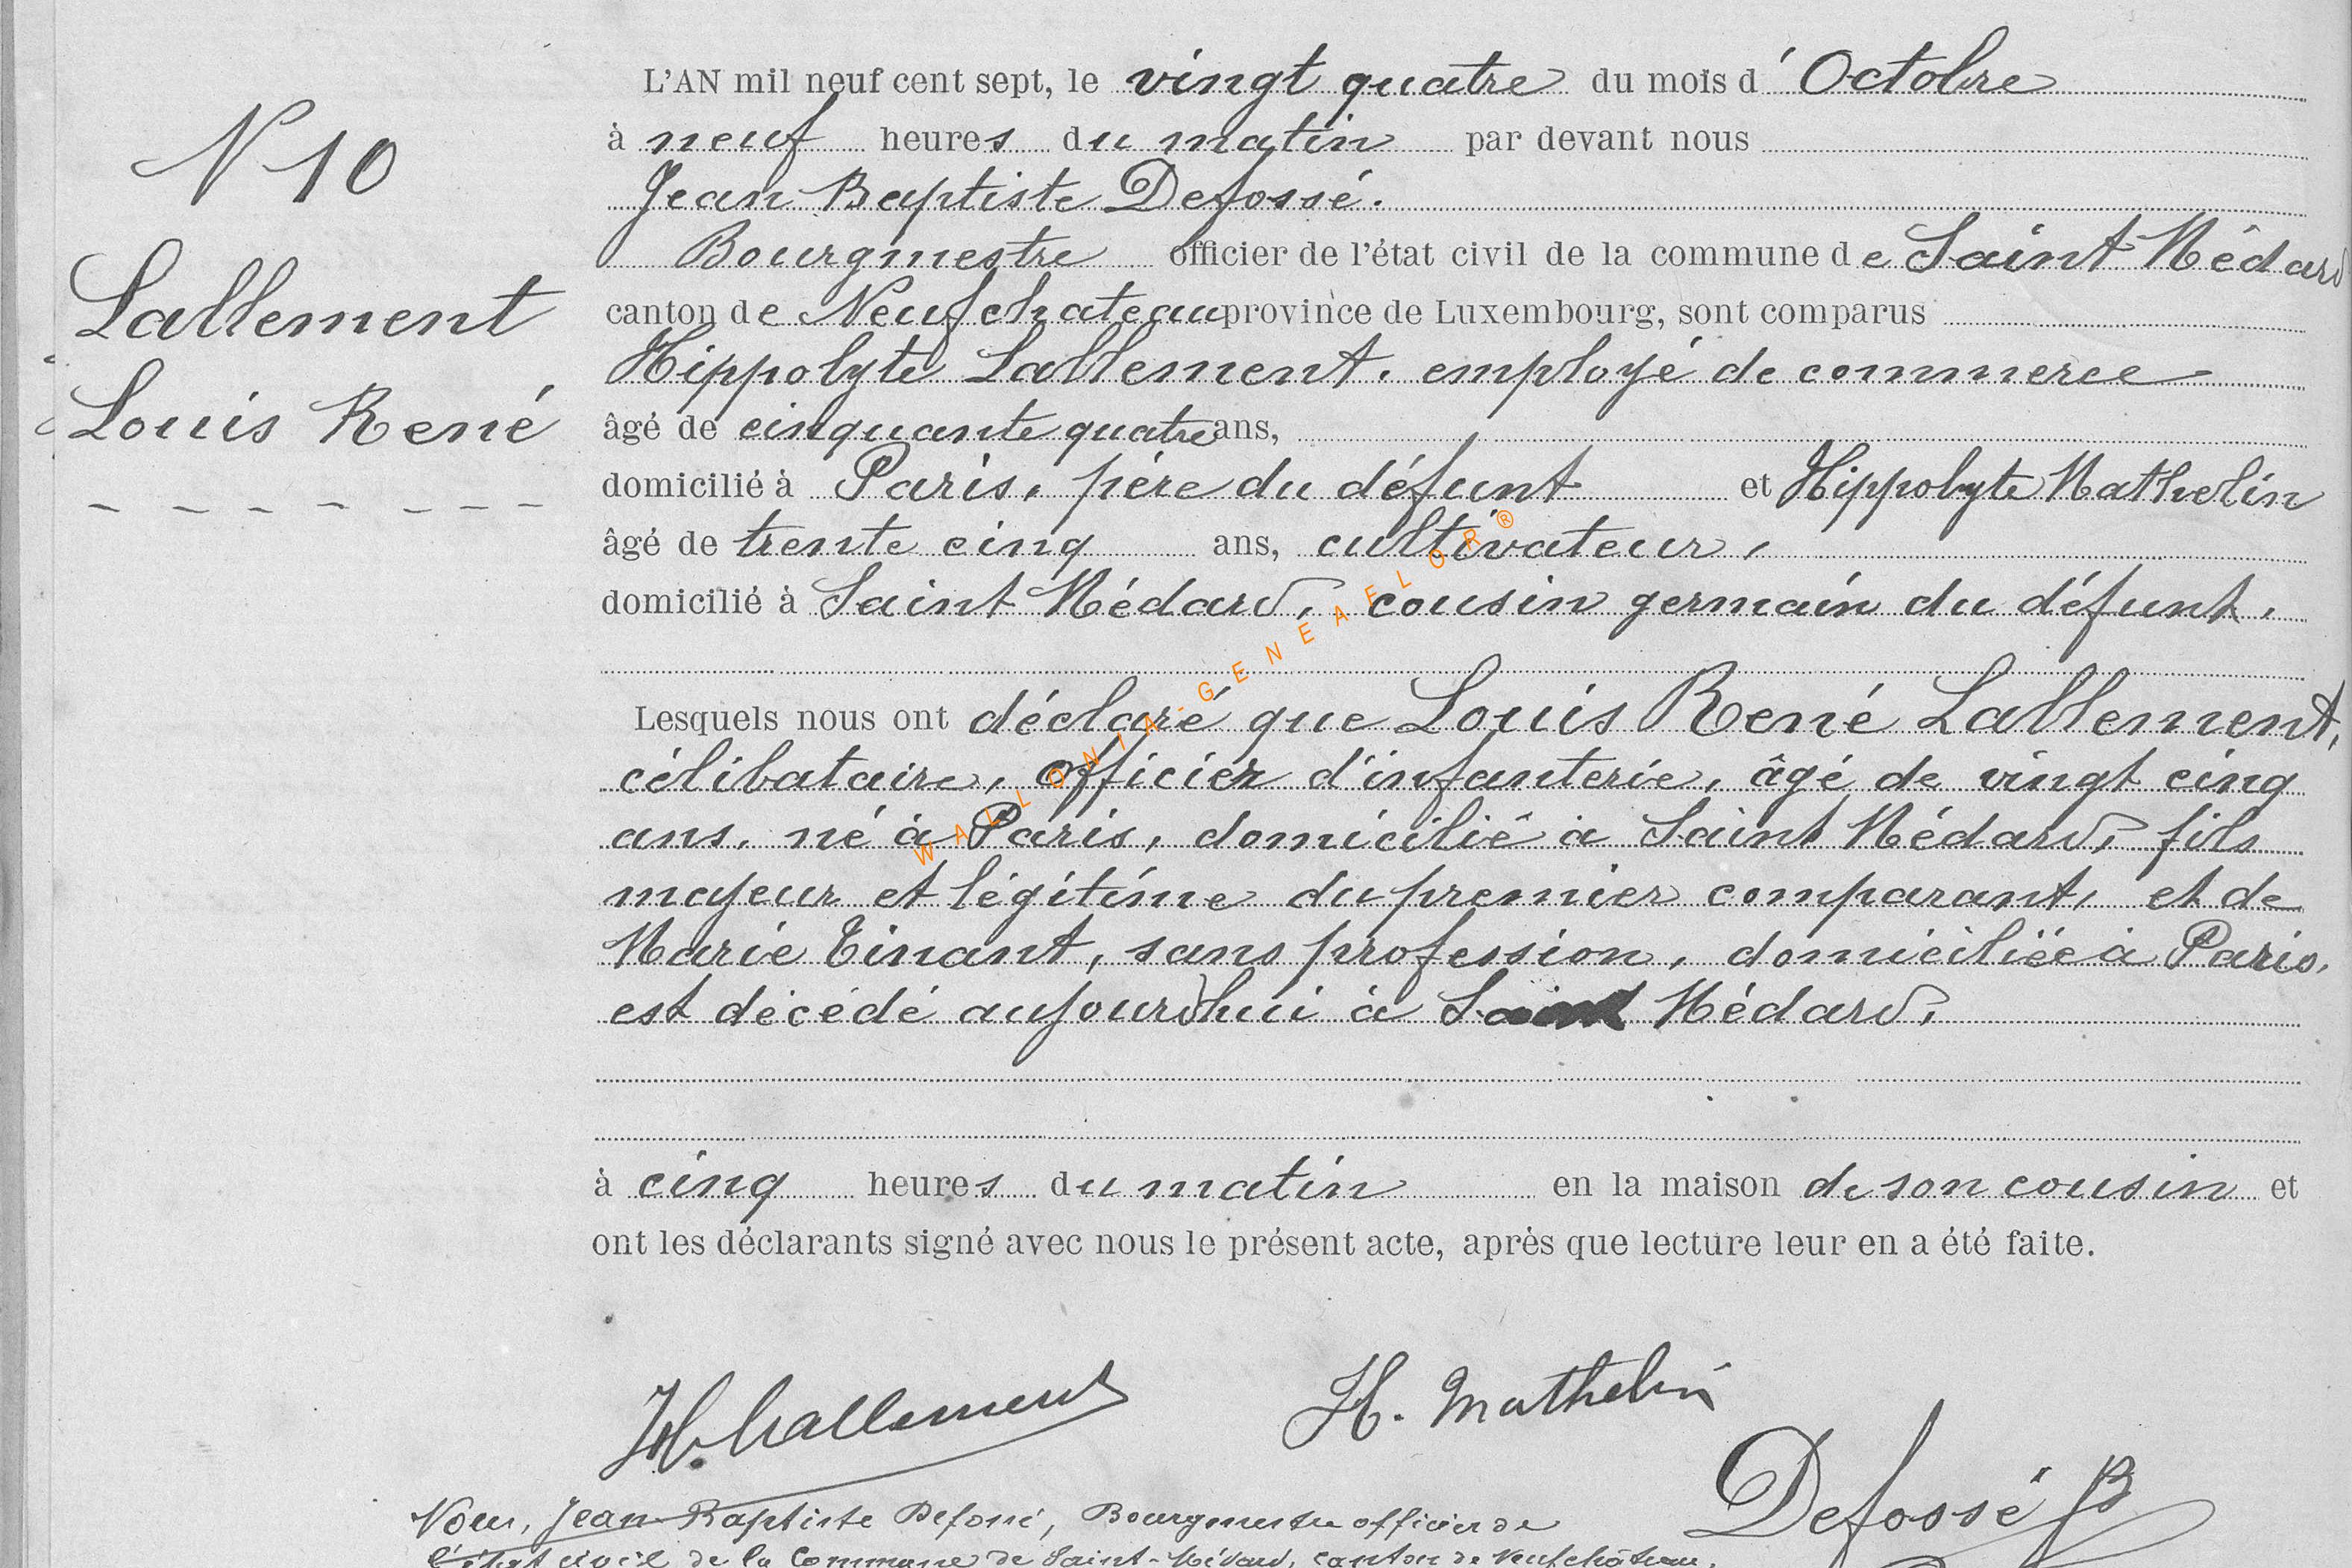 N 10
Lallement
Louis René
L'AN mil neuf cent sept, le vingt quatre du mois d' Octobre
à neuf heures du matin par devant nous
Jean Baptiste Defossé.
Bourgmestre officier de l'état civil de la commune de Saint Médard
canton de Neufchateau province de Luxembourg, sont comparus
Hippolyte Lallement, employé de commerce
âgé de cinquante quatre ans,
domicilié à Paris, père du défunt et Hippolyte Mathelin
âgé de trente cinq ans, cultivateur,
domicilié à Saint Médard, cousin germain du défunt,
Lesquels nous ont déclaré que Louis René Lallement,
célibataire, officier d'infanterie, âgé de vingt cinq
ans, né à Paris, domicilié à Saint Médard, fils
majeur et légitime du premier comparant, et de
Marie Tinant, sans profession, domiciliée à Paris,
est décédé aujourd'hui à Saint Médard,
à cinq heures du matin en la maison de son cousin et
ont les déclarants signé avec nous le présent acte, après que lecture leur en a été faite.
H. Lallement
H. Mathelin
Defossé JB
Nous, Jean-Baptiste Defossé, Bourgmestre officier de
l'état civil de la Commune de Saint-Médard, canton de Neufchâteau,
WALLONIA-GENEAFLOR®